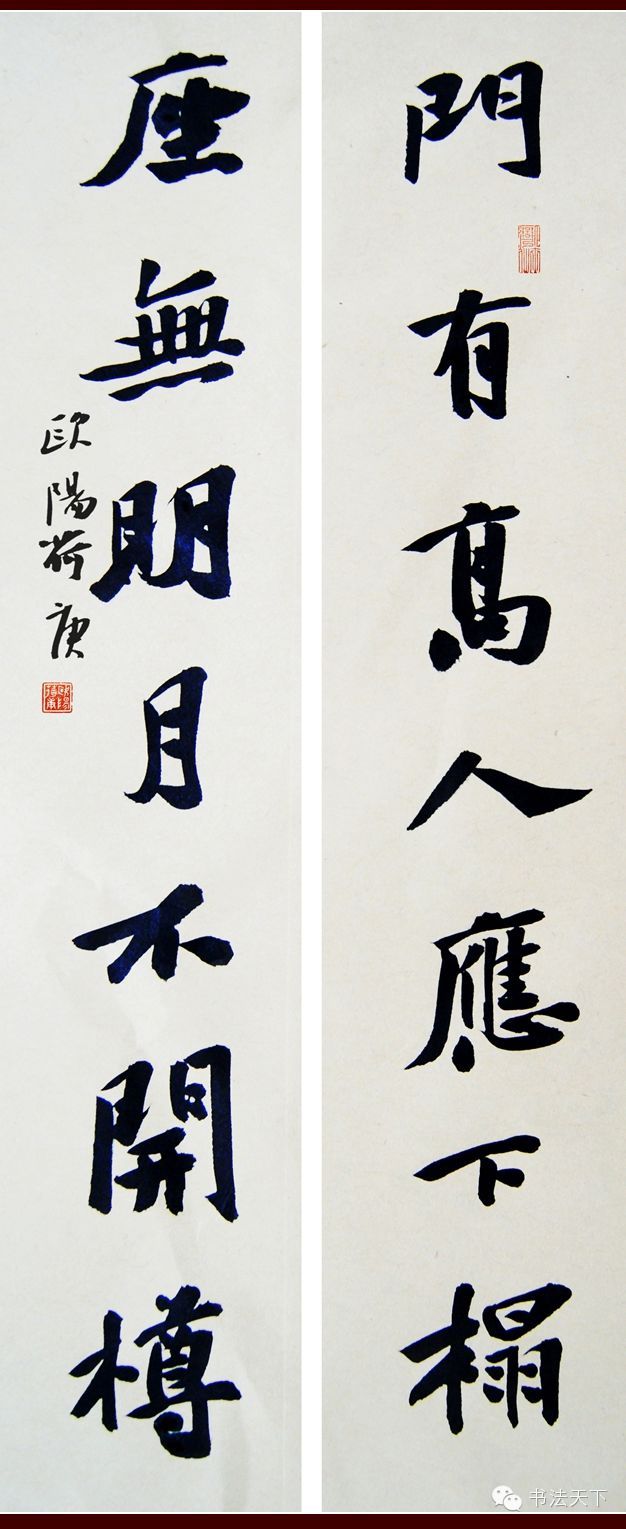 門有高人應下榻
座無明月不開樽
欧陽荷庚
书法天下